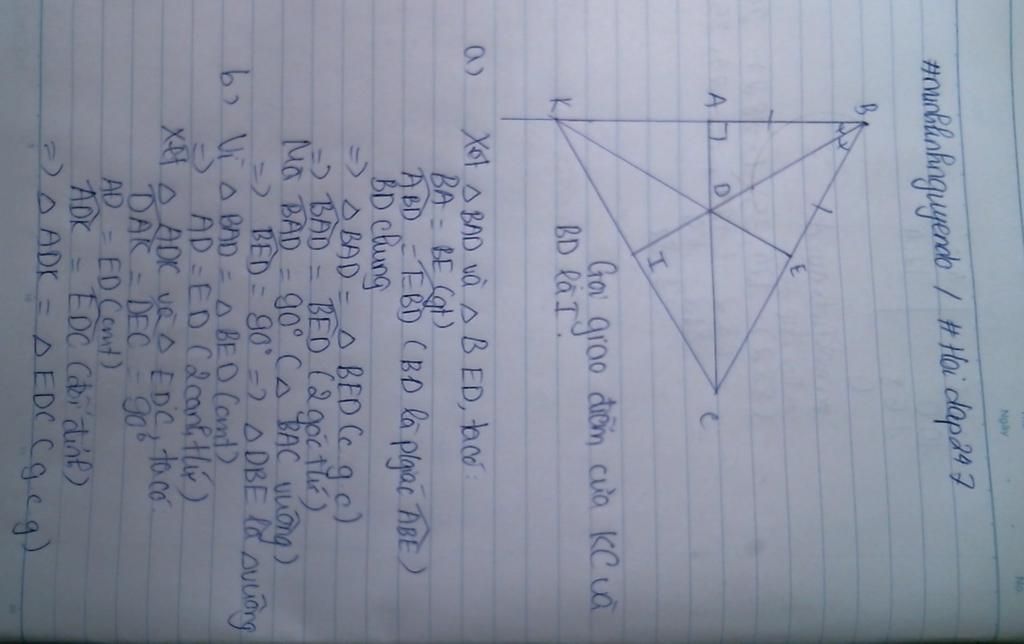 #minhkhanhnguyendo / #Hoidap247
B
A
K
D
E
I
C
Gọi giao điểm của KC và
BD là I.
a) Xét △ BAD và △ BED, ta có:
BA = BE (gt)
ABD = EBD (BD là pgiác ABE)
BD chung
=> △ BAD = △ BED (c g c)
=> BAD = BED (2 góc tứ)
Mà BAD = 90° (△ BAC vuông)
=> BED = 90° => △ DBE là △vuông
b) Vì △ BAD = △ BED (cmt)
=> AD = ED (2 cạnh tứ)
Xét △ ADK và △ EDC, ta có:
DAK = DEC = 90°
AD = ED (cmt)
ADK = EDC (đối đỉnh)
=> △ ADK = △ EDC (g c g)
Ngày
No